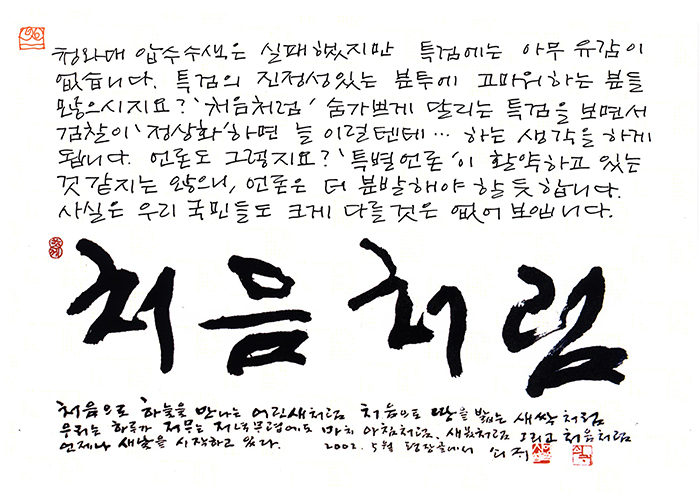 청와대 압수수색은 실패했지만 특검에는 아무 유감이
없습니다. 특검의 진정성있는 분투에 고마워하는 분들
많으시지요? '처음처럼' 숨가쁘게 달리는 특검을 보면서
검찰이 '정상화'하면 늘 이럴텐데… 하는 생각을 하게
됩니다. 언론도 그렇지요? '특별언론'이 활약하고 있는
것 같지는 않으니, 언론은 더 분발해야 할 듯 합니다.
사실은 우리 국민들도 크게 다를 것은 없어 보입니다.
처음처럼
처음으로 하늘을 만나는 어린새처럼 처음으로 땅을 밟는 새싹처럼
우리는 하루가 저무는 저녁무렵에도 마치 아침처럼, 새봄처럼 그리고 처음처럼
언제나 새날을 시작하고 있다. 2002. 5월